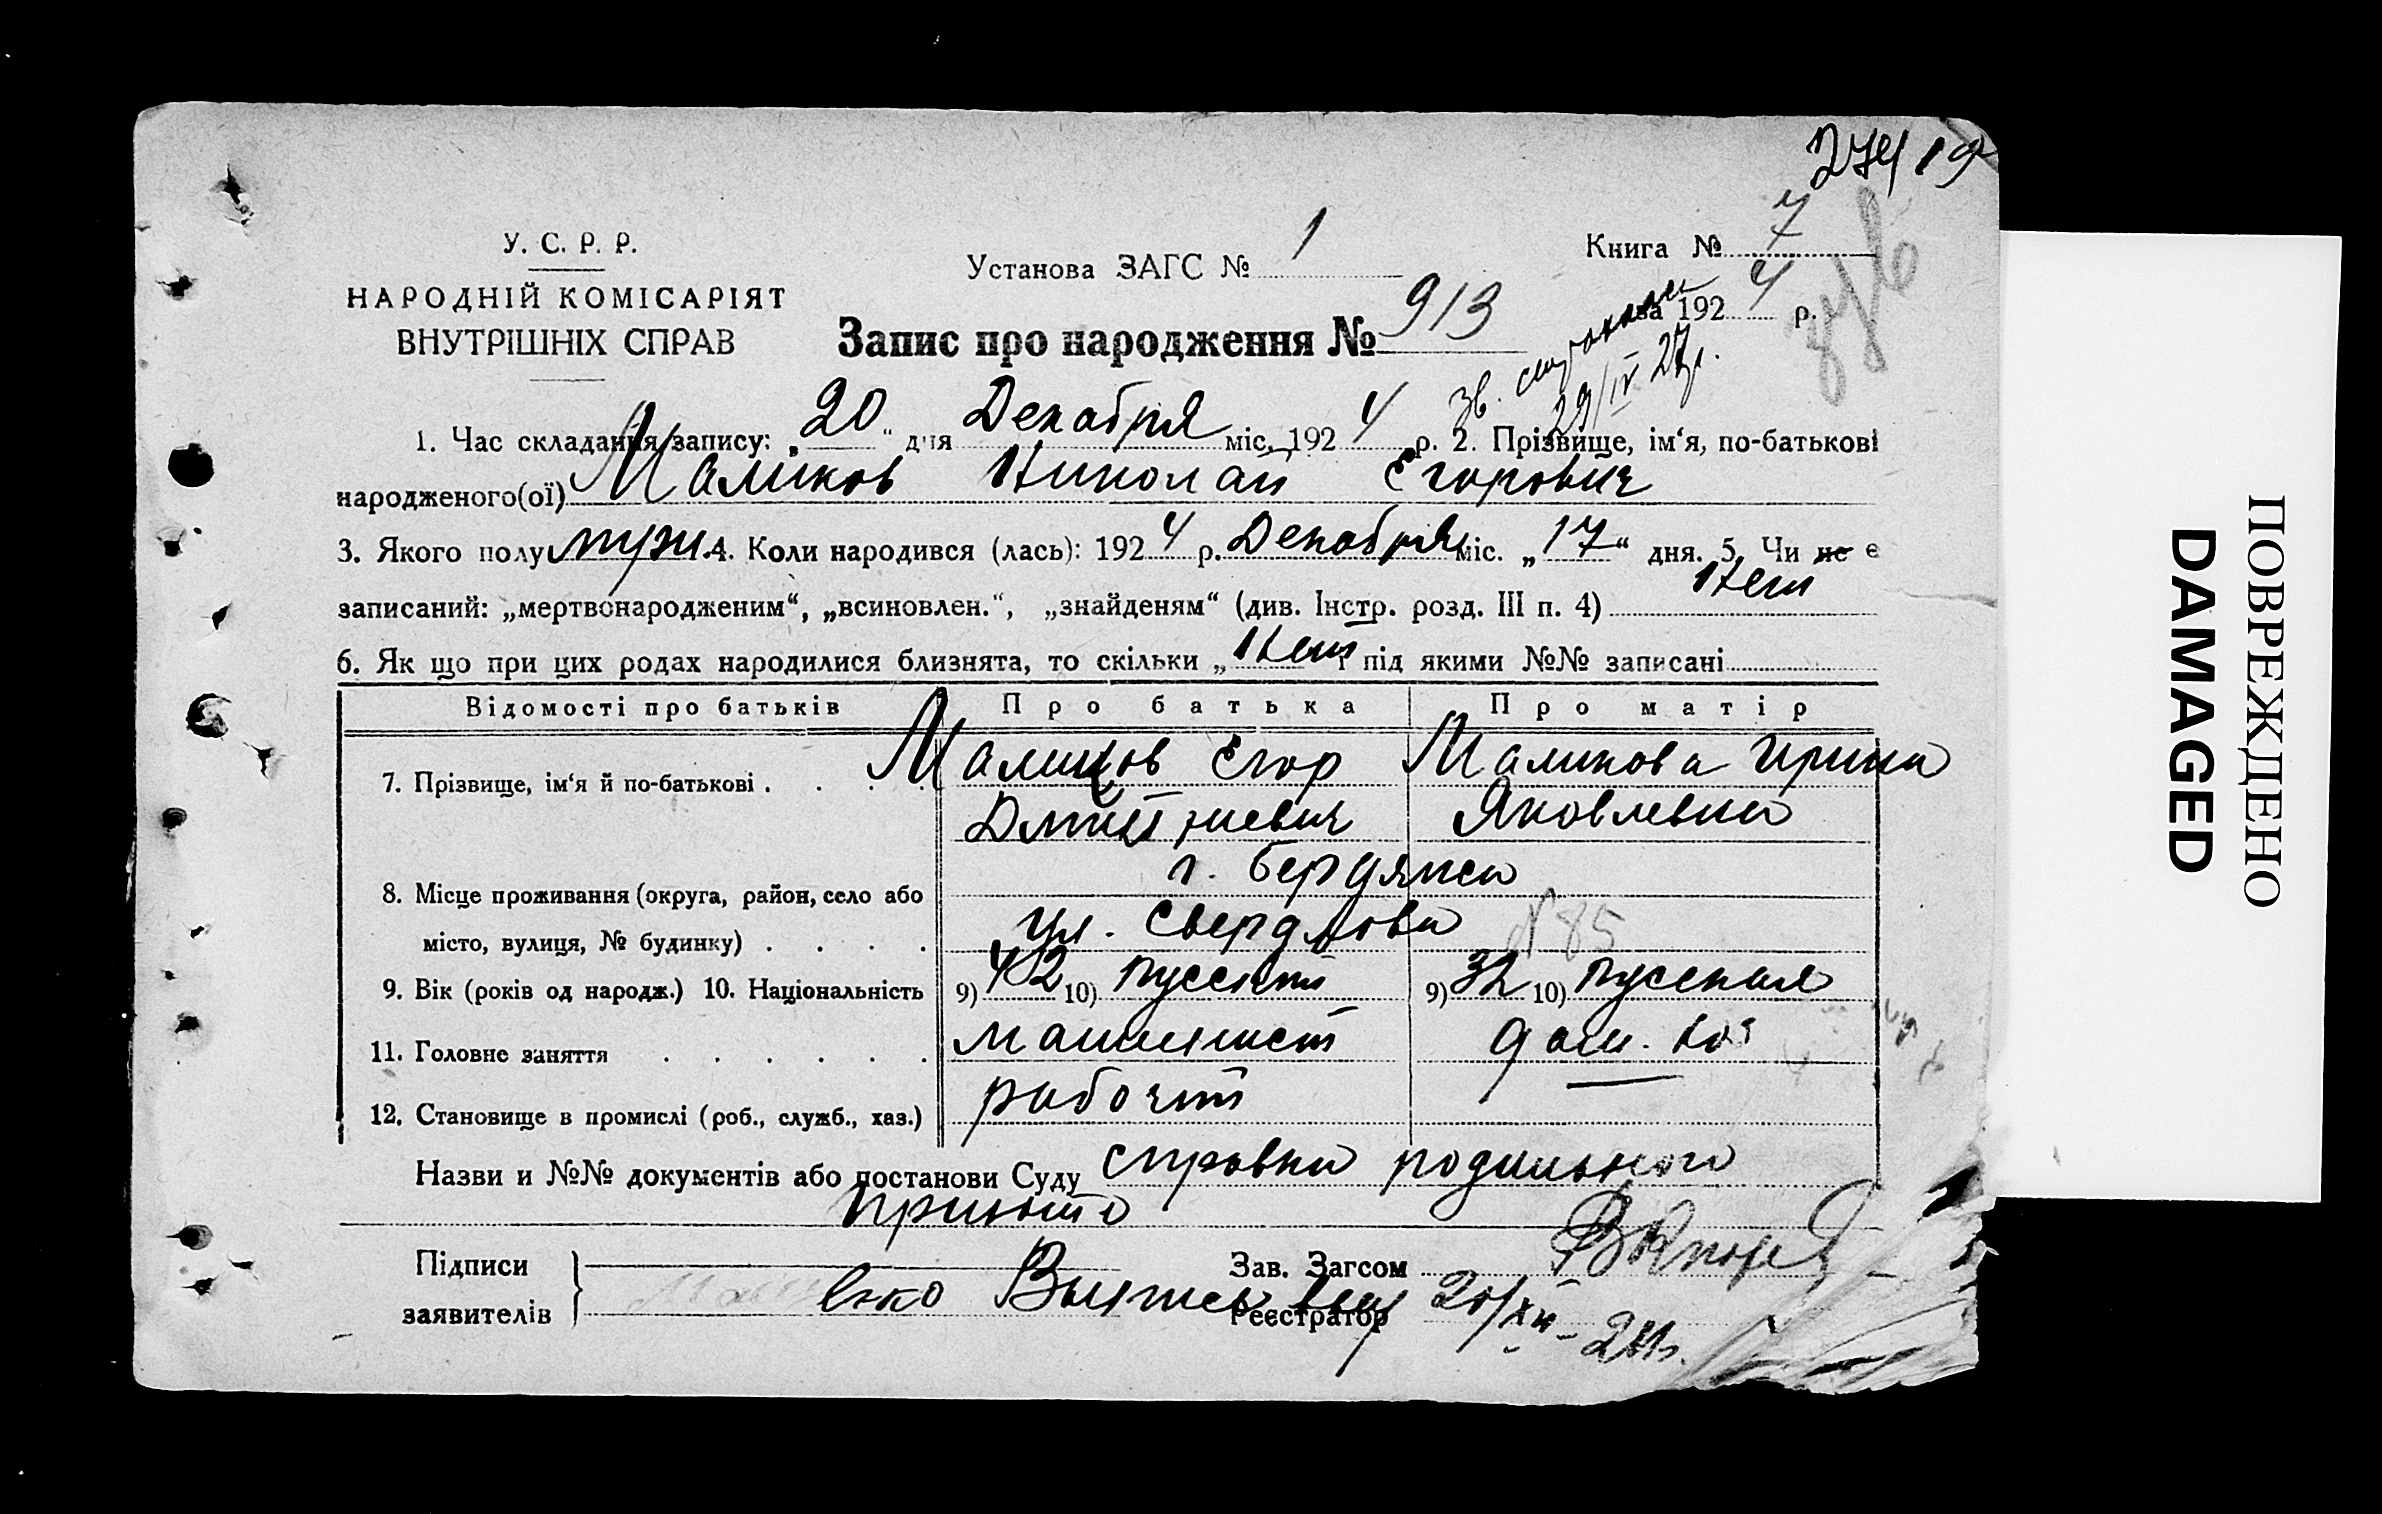 274 19
У. С. Р. Р.
НАРОДНІЙ КОМІСАРІЯТ
ВНУТРІШНІХ СПРАВ
Установа ЗАГС № 1
Книга № 7
за 1924 р.
Запис про народження № 913
29/IV 27 г.
1. Час складання запису: „20“ дня Декабря міс. 1924 р. 2. Прізвище, ім‘я, по-батькові
народженого(ої) Маликов Николай Егорович
3. Якого полу муж. 4. Коли народився (лась): 1924 р. Декабря міс. „17“ дня. 5. Чи не є
записаний: „мертвонародженим“, „всиновлен.“, „знайденям“ (див. Інстр. розд. III п. 4) Нет
6. Як що при цих родах народилися близнята, то скільки „Нет і під якими №№ записані
Відомості про батьків Про батька Про матір
7. Прізвище, ім‘я й по-батькові . . . . Маликов Егор Маликова Ирина
Дмитриевич Яковлевна
г. Бердянск
8. Місце проживання (округа, район, село або
місто, вулиця, № будинку) . . . . ул. Свердлова N 85
9. Вік (років од народж.) 10. Національність 9) 42 10) русский 9) 32 10) русская
11. Головне заняття . . . . . . машинист дом. хоз
12. Становище в промислі (роб., служб., хаз.) рабочий —
Назви и №№ документів або постанови Суду справка родильного
приюта
Підписи
заявителів
Зав. Загсом
Реєстратор 20/XII-24г.
ПОВРЕЖДЕНО
DAMAGED